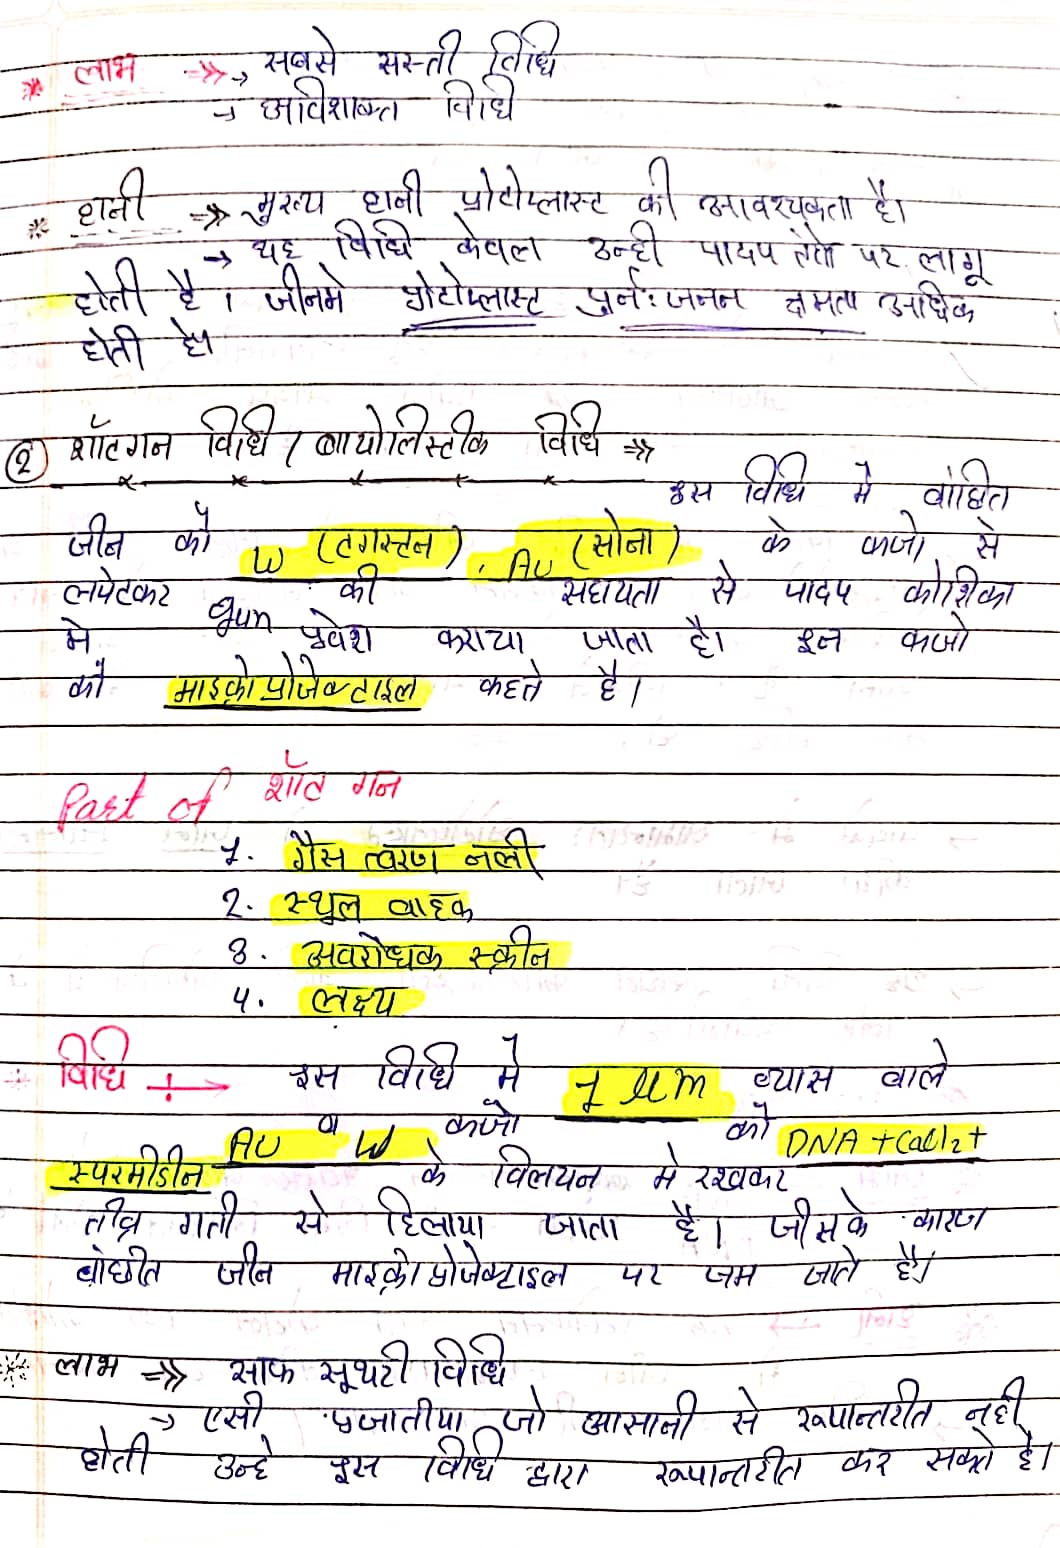 * लाभ ⇒» → सबसे सस्ती विधि
→ अविशाक्त विधि
* हानी ⇒» मुख्य हानी प्रोटोप्लास्ट की आवश्यकता है।
→ यह विधि केवल उन्ही पादप पर लागू
होती है। जीनमे प्रोटोप्लास्ट पुर्न:जनन क्षमता अधिक
होती है।
② शॉटगन विधि / बायोलिस्टीक विधि ⇒»
इस विधि मे वांछित
जीन को W (टगस्टन), Au (सोना) के कणो से
लपेटकर gun की सहायता से पादप कोशिका
मे प्रवेश कराया जाता है। इन कणो
को माइक्रोप्रोजेक्टाइल कहते है।
Part of शॉट गन
1. गैस त्वरण नली
2. स्थुल वाहक
3. अवरोधक स्क्रीन
4. लक्ष्य
* विधि → इस विधि मे 1 µm व्यास वाले
Au व W कणो को DNA + CaCl2 +
स्परमीडीन के विलयन मे रखकर
तीव्र गती से हिलाया जाता है। जीसके कारण
वांछीत जीन माइक्रोप्रोजेक्टाइल पर जम जाते है।
* लाभ ⇒» साफ सूथरी विधि
→ एसी प्रजातीया जो आसानी से रूपान्तरीत नही
होती उन्हे इस विधि द्वारा रूपान्तरीत कर सकते है।